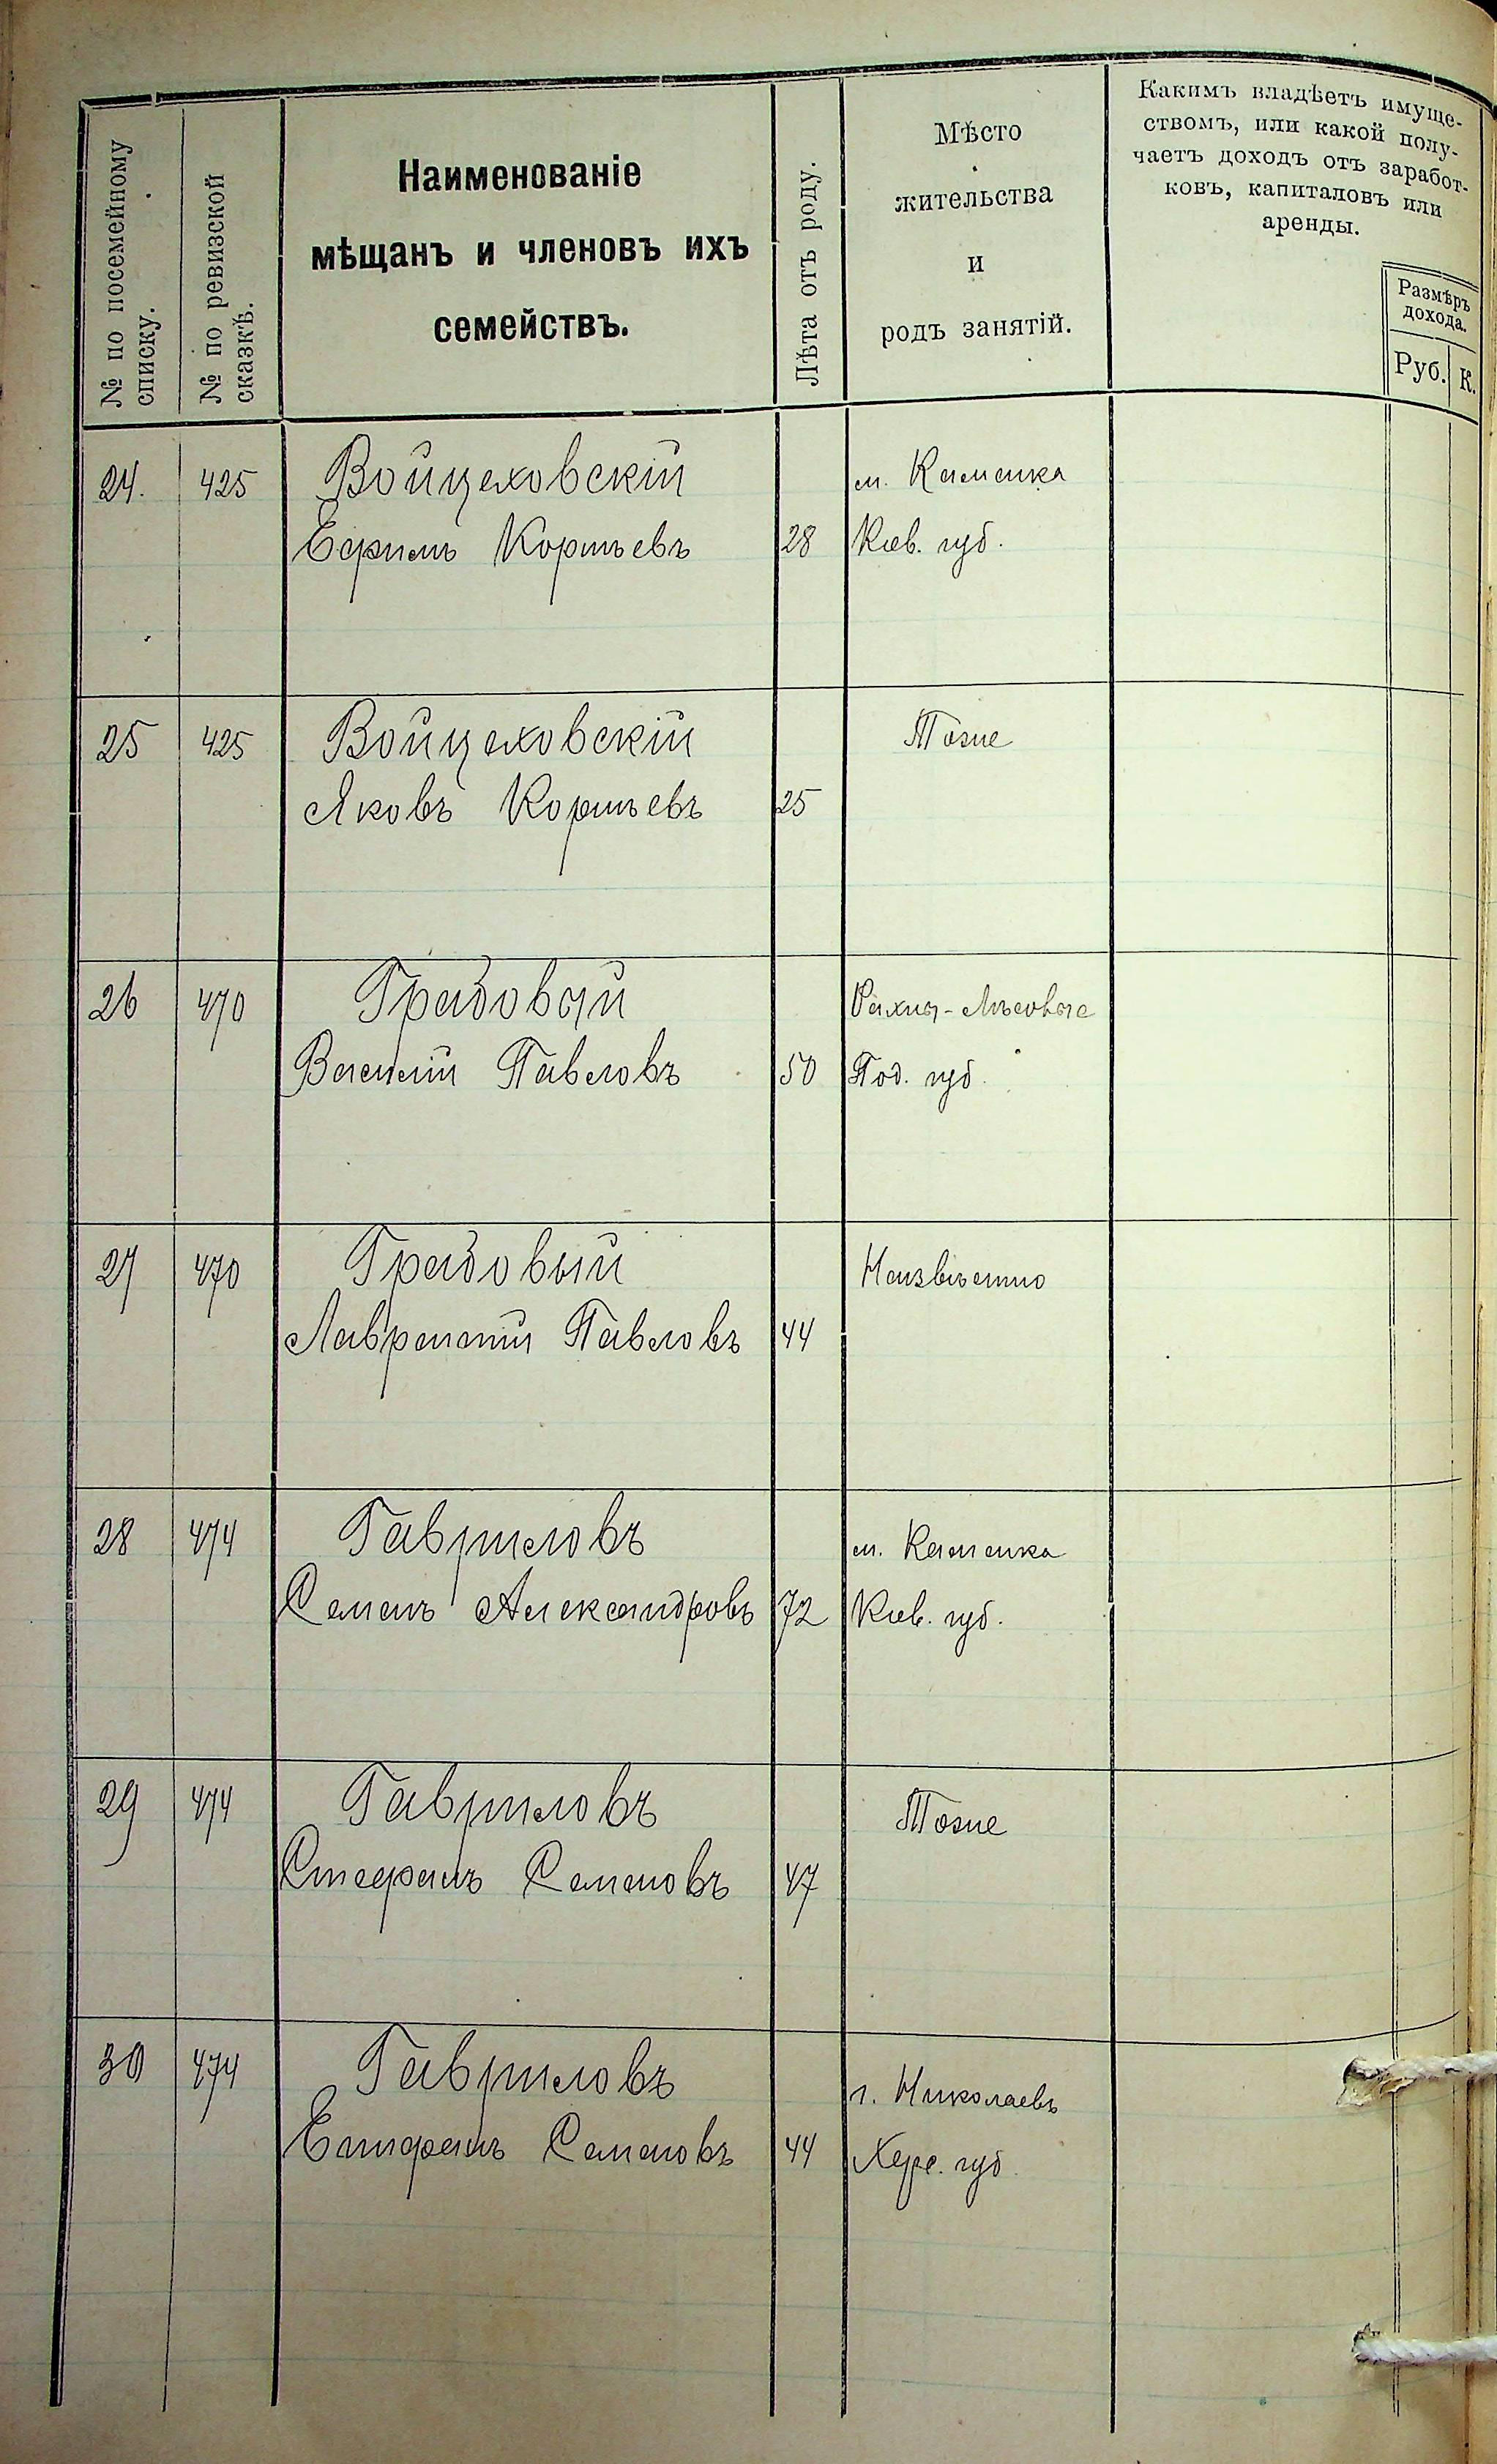 № по посемейному
списку.
№ по ревизской
сказкѣ.
Наименованіе
мѣщанъ и членовъ ихъ
семействъ.
Лѣта отъ роду.
Мѣсто
жительства
и
родъ занятій.
Какимъ владѣетъ имуще-
ствомъ, или какой полу-
чаетъ доходъ отъ заработ-
ковъ, капиталовъ или
аренды.
Размѣръ
дохода.
Руб. К.
24. 425 Войцеховскій м. Каменка
Ефимъ Корнѣевъ 28 Кіев. губ.
25 425 Войцеховскій Тоже
Яковъ Корнѣевъ 25
26 470 Градовый Рахны-Лѣсовые
Василій Павловъ 50 Под. губ.
27 470 Градовый Неизвѣстно
Лаврентій Павловъ 44
28 474 Гавриловъ м. Каменка
Семенъ Александровъ 72 Кіев. губ.
29 474 Гавриловъ Тоже
Стефанъ Семеновъ 47
30 474 Гавриловъ г. Николаевъ
Епифанъ Семеновъ 44 Херс. губ.